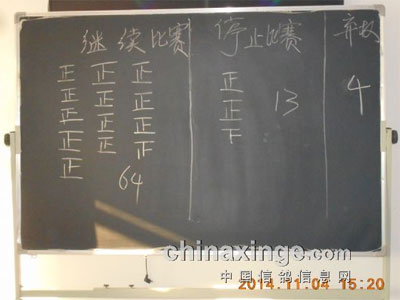 继续比赛 停止比赛 弃权
正 正 正 正
正 正 正 正 13 4
正 正 正 下
正 正 下
正 64
chinaxinge.com
中国信鸽信息网
2014.11.04 15:20